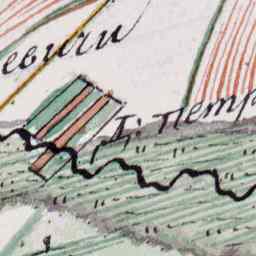 евичи
Д: петр